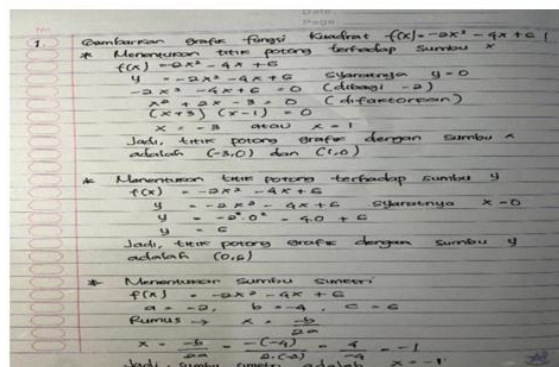 No.
Date:
Page:
1. Gambarkan grafik fungsi kuadrat f(x) = -2x² - 4x + 6 !
* Menentukan titik potong terhadap sumbu x
f(x) = -2x² - 4x + 6
y = -2x² - 4x + 6 Syaratnya y = 0
-2x² - 4x + 6 = 0 (dibagi -2)
x² + 2x - 3 = 0 (difaktorkan)
(x+3) (x-1) = 0
x = -3 atau x = 1
Jadi, titik potong grafik dengan sumbu x
adalah (-3,0) dan (1,0)
* Menentukan titik potong terhadap sumbu y
f(x) = -2x² - 4x + 6
y = -2x² - 4x + 6 syaratnya x = 0
y = -2.0² - 4.0 + 6
y = 6
Jadi, titik potong grafik dengan sumbu y
adalah (0,6)
* Menentukan sumbu simetri
f(x) = -2x² - 4x + 6
a = -2, b = -4, c = 6
Rumus → x = -b/2a
x = -b/2a = -(-4)/2.(-2) = 4/-4 = -1
Jadi, sumbu simetri adalah x = -1